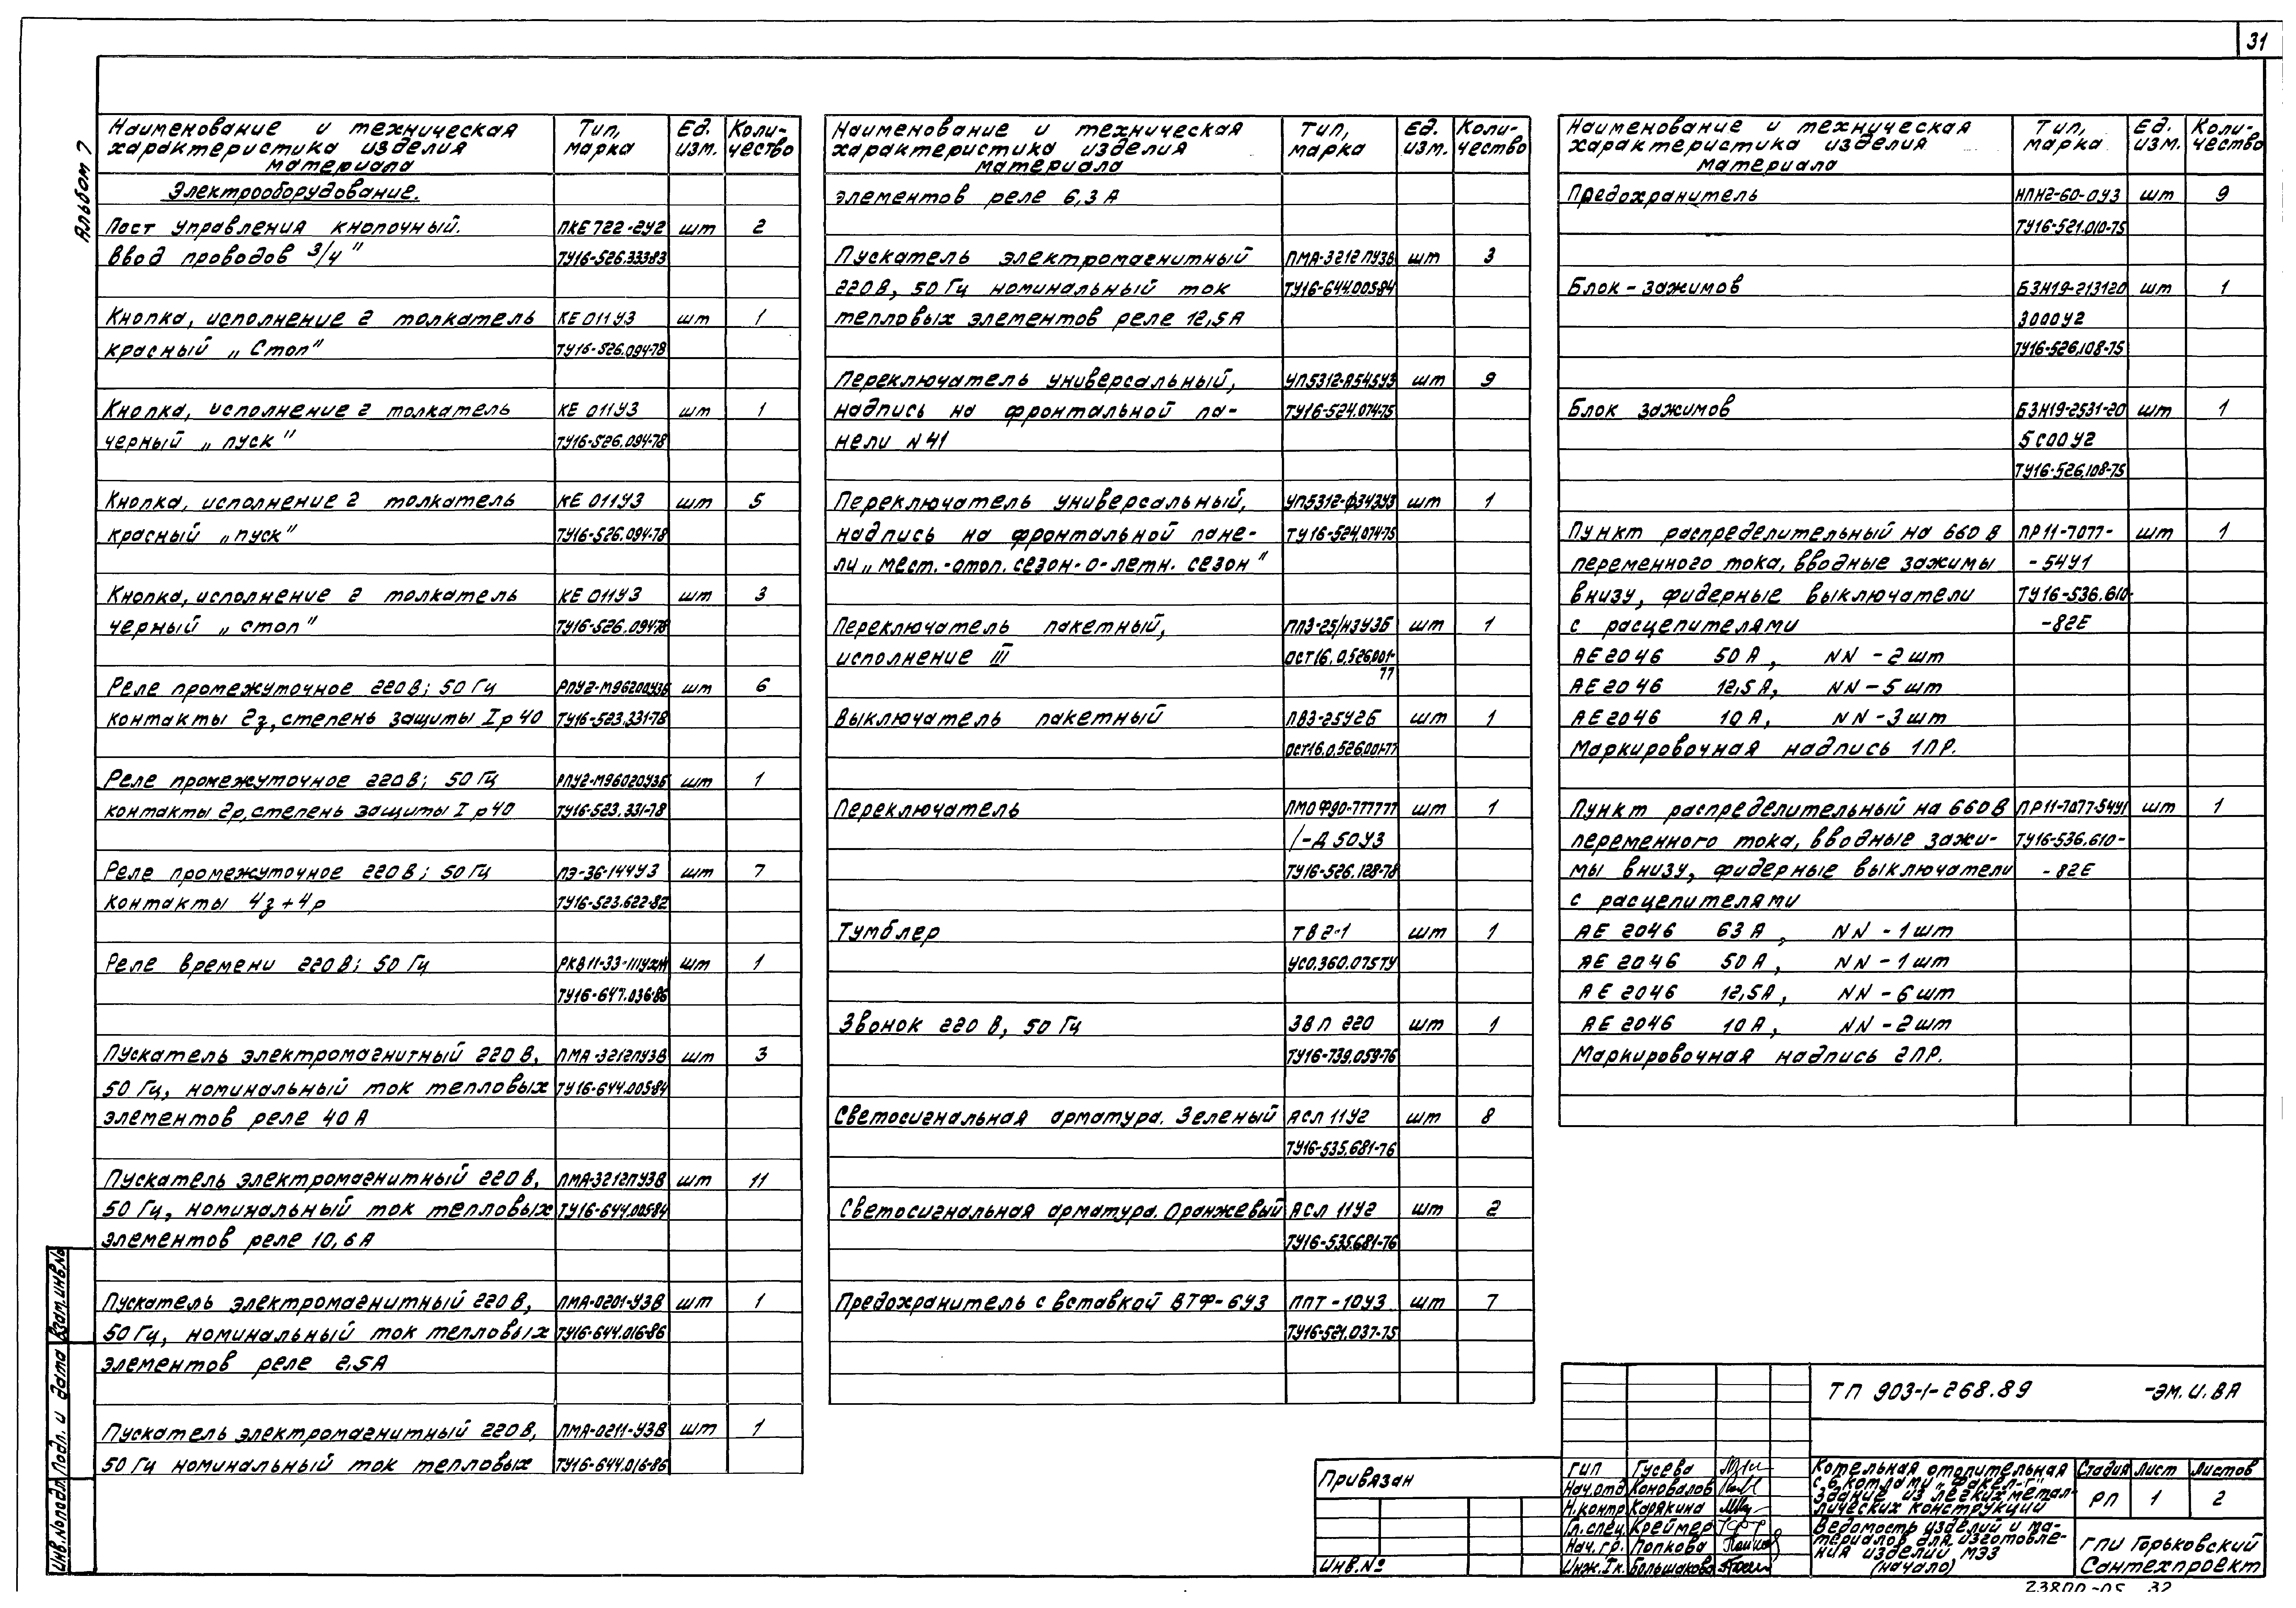 31
Альбом 7
Наименование и техническая характеристика изделия материала | Тип, марка | Ед. изм. | Коли-чество
Электрооборудование.
Пост управления кнопочный. ПКЕ 722-2У2 шт 2
Ввод проводов 3/4" ТУ16-526.33383
Кнопка, исполнение 2 толкатель КЕ 011У3 шт 1
красный „Стоп" ТУ16-526.094-78
Кнопка, исполнение 2 толкатель КЕ 011У3 шт 1
черный „пуск" ТУ16-526.094-78
Кнопка, исполнение 2 толкатель КЕ 011У3 шт 5
красный „пуск" ТУ16-526.094-78
Кнопка, исполнение 2 толкатель КЕ 011У3 шт 3
черный „стоп" ТУ16-526.094-78
Реле промежуточное 220В; 50 Гц РПУ2-М96200У3Б шт 6
контакты 2з, степень защиты Iр40 ТУ16-523.331-78
Реле промежуточное 220В; 50 Гц РПУ2-М96020У3Б шт 1
контакты 2р, степень защиты Iр40 ТУ16-523.331-78
Реле промежуточное 220В; 50Гц ПЭ-36-144У3 шт 7
контакты 4з+4р ТУ16-523.622-82
Реле времени 220В; 50 Гц шт 1
ТУ16-647.036-86
Пускатель электромагнитный 220В, ПМА-3212ПУ3В шт 3
50 Гц, номинальный ток тепловых ТУ16-644.005-84
элементов реле 40А
Пускатель электромагнитный 220В, ПМА-3212ПУ3В шт 11
50 Гц, номинальный ток тепловых ТУ16-644.005-84
элементов реле 10,6А
Пускатель электромагнитный 220В, ПМА-0201-У3В шт 1
50Гц, номинальный ток тепловых ТУ16-644.016-86
элементов реле 2,5А
Пускатель электромагнитный 220В, ПМА-0211-У3В шт 1
50 Гц номинальный ток тепловых ТУ16-644.016-86
Наименование и техническая характеристика изделия материала | Тип, марка | Ед. изм. | Коли-чество
элементов реле 6,3А
Пускатель электромагнитный ПМА-3212ПУ3В шт 3
220В, 50 Гц номинальный ток ТУ16-644.005-84
тепловых элементов реле 12,5А
Переключатель универсальный, УП5312-А545У3 шт 9
надпись на фронтальной па- ТУ16-524.074-75
нели N41
Переключатель универсальный, УП5312-Ф343У3 шт 1
надпись на фронтальной пане- ТУ16-524.074-75
ли „мест.-отоп. сезон-0-летн. сезон"
Переключатель пакетный, ПП3-25/Н3У3Б шт 1
исполнение III ОСТ16.0.526.001-
77
Выключатель пакетный ПВ3-25У2Б шт 1
ОСТ16.0.526.001-77
Переключатель ПМОФ90-777777 шт 1
/-Д 50У3
ТУ16-526.128-78
Тумблер ТВ2-1 шт 1
УС0.360.075ТУ
Звонок 220 В, 50 Гц ЗВП 220 шт 1
ТУ16-739.059-76
Светосигнальная арматура. Зеленый АСЛ 11У2 шт 8
ТУ16-535.681-76
Светосигнальная арматура. Оранжевый АСЛ 11У2 шт 2
ТУ16-535.681-76
Предохранитель с вставкой ВТФ-6У3 ППТ-10У3 шт 7
ТУ16-521.037-75
Наименование и техническая характеристика изделия материала | Тип, марка | Ед. изм. | Коли-чество
Предохранитель НПН2-60-0У3 шт 9
ТУ16-521.010-75
Блок-зажимов БЗН19-213120 шт 1
300У2
ТУ16-526.108-75
Блок зажимов БЗН19-2531-20 шт 1
5С00У2
ТУ16-526.108-75
Пункт распределительный на 660 В ПР11-7077- шт 1
переменного тока, вводные зажимы -54У1
внизу, фидерные выключатели ТУ16-536.610-
с расцепителями -82Е
АЕ2046 50 А, NN -2шт
АЕ2046 12,5А, NN -5 шт
АЕ2046 10 А, NN -3шт
Маркировочная надпись 1ПР.
Пункт распределительный на 660В ПР11-7077-54У1 шт 1
переменного тока, вводные зажи- ТУ16-536.610-
мы внизу, фидерные выключатели -82Е
с расцепителями
АЕ 2046 63 А, NN -1шт
АЕ 2046 50 А, NN -1 шт
АЕ 2046 12,5А, NN -6шт
АЕ 2046 10 А, NN -2шт
Маркировочная надпись 2ПР.
Взам.инв.№
Подп. и дата
Инв.№подл.
Привязан
Инв.№
ТП 903-1-268.89 -ЭМ.И.ВА
ГИП Гусева
Нач.отд Коновалов
Н.контр Карякина
Гл.спец. Креймер
Нач.гр. Попкова
Инж.Iк. Большакова
Котельная отопительная
с 6 котлами „Факел-Г"
здание из легких метал-
лических конструкций
Стадия Лист Листов
РП 1 2
Ведомость изделий и ма-
териалов для изготовле-
ния изделий МЭЗ
(начало)
ГПИ Горьковский
Сантехпроект
23800-05 32